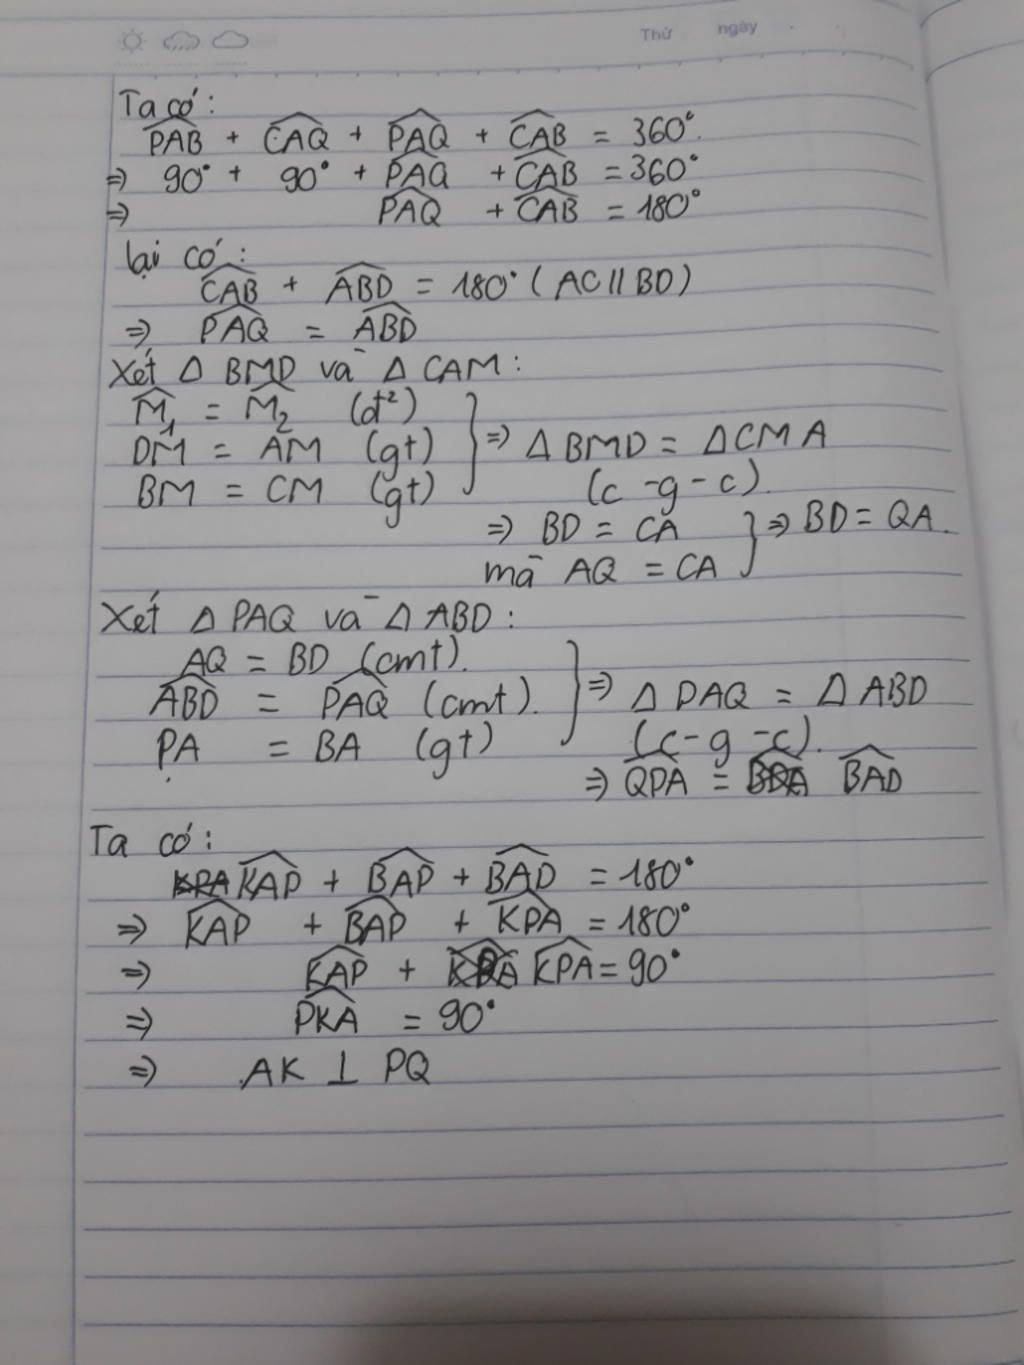 Thứ ngày
Ta có:
PAB + CAQ + PAQ + CAB = 360°.
=> 90° + 90° + PAQ + CAB = 360°
=> PAQ + CAB = 180°
lại có:
CAB + ABD = 180° (AC // BD)
=> PAQ = ABD
Xét Δ BMD và Δ CAM:
M₁ = M₂ (đ²)
DM = AM (gt)
BM = CM (gt)
=> Δ BMD = Δ CMA
(c - g - c).
=> BD = CA
mà AQ = CA
=> BD = QA.
Xét Δ PAQ và Δ ABD:
AQ = BD (cmt).
ABD = PAQ (cmt).
PA = BA (gt)
=> Δ PAQ = Δ ABD
(c - g - c).
=> QPA = BAD
Ta có:
KAP + BAP + BAD = 180°
=> KAP + BAP + KPA = 180°
=> KAP + KPA = 90°
=> PKA = 90°
=> AK ⊥ PQ